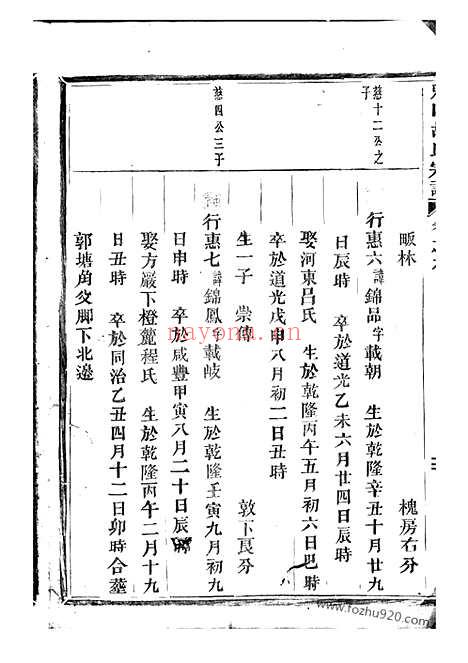 畈林 槐房右分
慈十二公之子
行惠六諱錦品字載朝 生於乾隆辛丑十月廿九
日辰時 卒於道光乙未六月廿四日辰時
娶河東呂氏 生於乾隆丙午五月初六日巳時
卒於道光戊申八月初二日丑時
生一子 崇傳 敦下良分
慈四公三子
行惠七諱錦鳳字載岐 生於乾隆壬寅九月初九
日申時 卒於咸豐甲寅八月二十日辰時
娶方巖下橙麓程氏 生於乾隆丙午二月十九
日丑時 卒於同治乙丑四月十二日卯時合塟
郭塘角交脚下北邊
nayona.cn
www.fozhu920.com